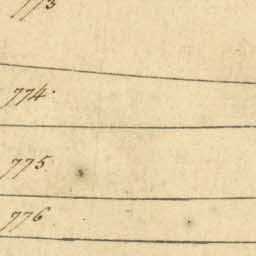 773
774.
775
776